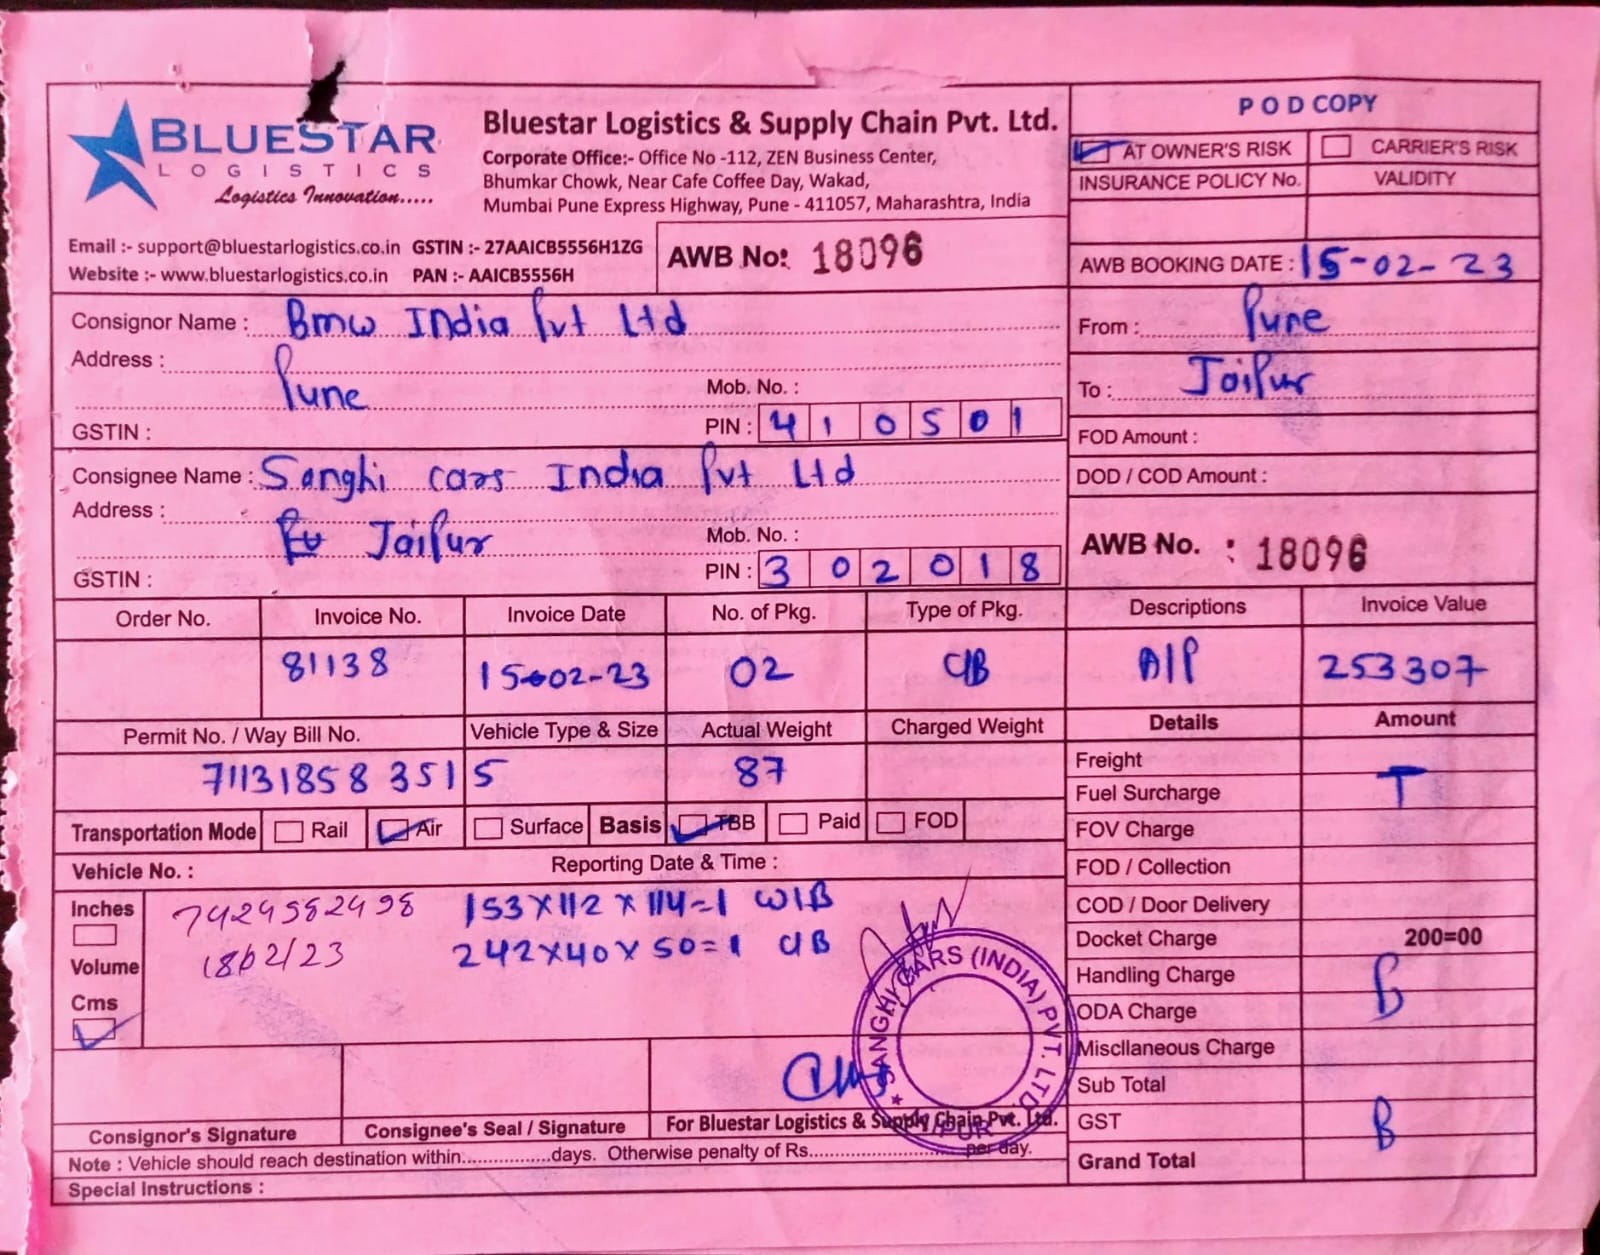 BLUESTAR
LOGISTICS
Logistics Innovation.....
Bluestar Logistics & Supply Chain Pvt. Ltd.
Corporate Office:- Office No -112, ZEN Business Center,
Bhumkar Chowk, Near Cafe Coffee Day, Wakad,
Mumbai Pune Express Highway, Pune - 411057, Maharashtra, India
POD COPY
AT OWNER'S RISK CARRIER'S RISK
INSURANCE POLICY No. VALIDITY
Email :- support@bluestarlogistics.co.in GSTIN :- 27AAICB5556H1ZG
Website :- www.bluestarlogistics.co.in PAN :- AAICB5556H
AWB No: 18096
AWB BOOKING DATE : 15-02-23
Consignor Name : Bmw India Pvt Ltd
From : Pune
Address :
Pune
Mob. No. :
To : Jaipur
GSTIN :
PIN : 410501
FOD Amount :
Consignee Name : Sanghi cars India Pvt Ltd
DOD / COD Amount :
Address :
Jaipur
Mob. No. :
AWB No. : 18096
GSTIN :
PIN : 302018
Order No. Invoice No. Invoice Date No. of Pkg. Type of Pkg. Descriptions Invoice Value
81138 15-02-23 02 C/B A/P 253307
Permit No. / Way Bill No. Vehicle Type & Size Actual Weight Charged Weight Details Amount
711318583515 87
Freight
Fuel Surcharge T
Transportation Mode Rail Air Surface Basis TBB Paid FOD
FOV Charge
Vehicle No. : Reporting Date & Time :
FOD / Collection
Inches 7424982498 153X112X114=1 W/B
COD / Door Delivery
18/02/23 242X40X50=1 C/B
Docket Charge 200=00
Volume
Handling Charge B
Cms
ODA Charge
SANGHI CARS (INDIA) PVT. LTD.
Miscllaneous Charge
Sub Total
Consignor's Signature Consignee's Seal / Signature For Bluestar Logistics & Supply Chain Pvt. Ltd.
GST B
Note : Vehicle should reach destination within...............days. Otherwise penalty of Rs............................per day.
Grand Total
Special Instructions :